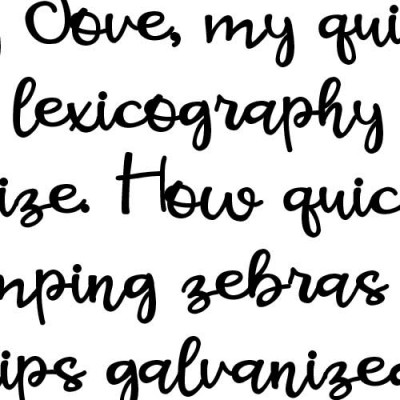 Jove, my qui
lexicography
ize. How quic
mping zebras
ips galvanized